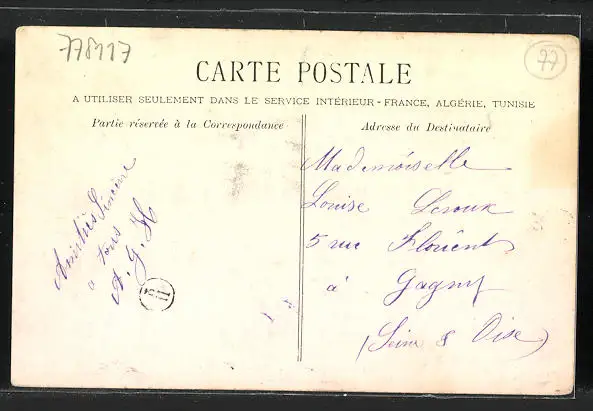 778117
77
CARTE POSTALE
A UTILISER SEULEMENT DANS LE SERVICE INTÉRIEUR - FRANCE, ALGÉRIE, TUNISIE
Partie réservée à la Correspondance
Adresse du Destinataire
Amitiés Sincère
a tous
A. G. H
Mademoiselle
Louise Leroux
5 rue Florient
à Gagny
(Seine & Oise)